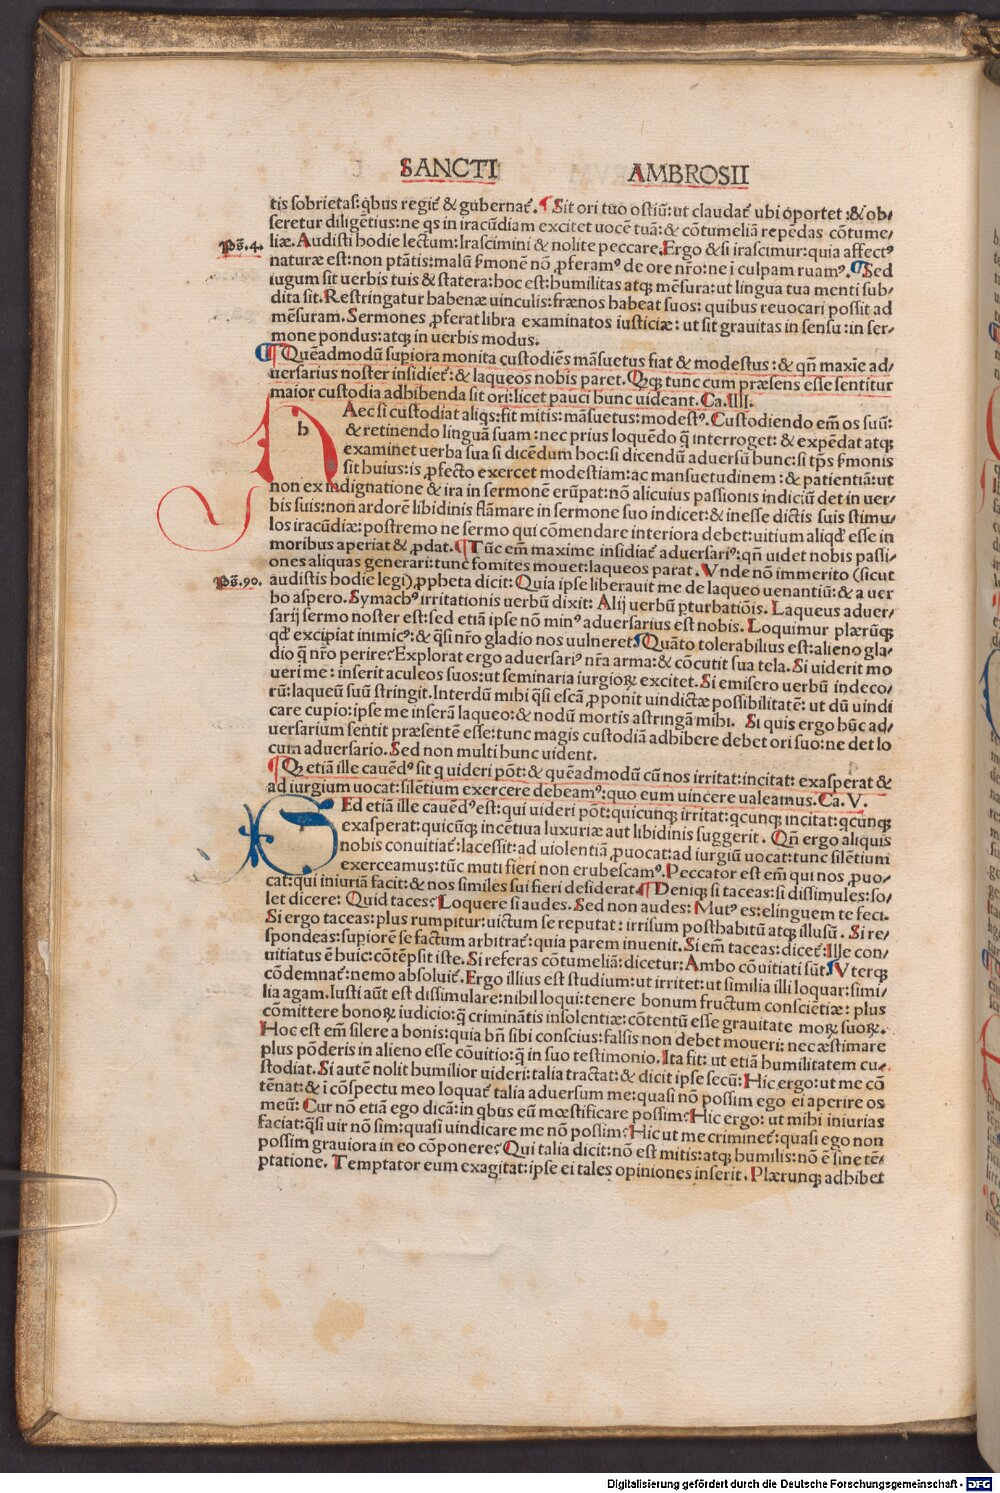 SANCTI AMBROSII
tis sobrietas: q̇bus regit᷑ & gubernat᷑. ¶ Sit ori tuo ostiū: ut claudat᷑ ubi oportet: & ob/
seretur diligētius: ne q̇s in iracūdiam excitet uocē tuā: & cōtumeliā repēdas cōtume/
Ps̄.4.
liæ. Audisti hodie lectum: Irascimini & nolite peccare. Ergo & si irascimur: quia affectꝰ
naturæ est: non ptātis: malū ẜmonē nō ꝓferamꝰ de ore nr̄o: ne i culpam ruamꝰ. ¶ Sed
iugum sit uerbis tuis & statera: hoc est: humilitas atqꝫ mēsura: ut lingua tua menti sub/
dita sit. Restringatur habenæ uinculis: frænos habeat suos: quibus reuocari possit ad
mēsuram. Sermones ꝓferat libra examinatos iusticiæ: ut sit grauitas in sensu: in ser/
mone pondus: atqꝫ in uerbis modus.
¶ Quēadmodū supiora monita custodiēs māsuetus fiat & modestus: & qn̄ maxīe ad/
uersarius noster insidiet᷑: & laqueos nobis paret. Qꝫqꝫ tunc cum præsens esse sentitur
maior custodia adhibenda sit ori: licet pauci hunc uideant. Ca. IIII.
h Aec si custodiat aliq̇s: fit mitis: māsuetus: modestꝰ. Custodiendo em̄ os suū:
& retinendo linguā suam: nec prius loquēdo q̄ interroget: & expēdat atqꝫ
examinet uerba sua si dicēdum hoc: si dicendū aduersū hunc: si tp̄s ẜmonis
sit huius: is ꝓfecto exercet modestiam: ac mansuetudinem: & patientiā: ut
non ex indignatione & ira in sermonē erūpat: nō alicuius passionis indiciū det in uer/
bis suis: non ardorē libidinis flāmare in sermone suo indicet: & inesse dictis suis stimu/
los iracūdiæ: postremo ne sermo qui cōmendare interiora debet: uitium aliqd̛ esse in
moribus aperiat & ꝓdat. ¶ Tūc em̄ maxime insidiat᷑ aduersariꝰ: qn̄ uidet nobis passi/
ones aliquas generari: tunc fomites mouet: laqueos parat. Vnde nō immerito (sicut
Ps̄.90.
audistis hodie legi) ꝓpheta dicit: Quia ipse liberauit me de laqueo uenantiū: & a uer
bo aspero. Symachꝰ irritationis uerbū dixit: Alij uerbū ꝑturbatiōis. Laqueus aduer/
sarij sermo noster est: sed etiā ipse nō minꝰ aduersarius est nobis. Loquimur plærūqꝫ
qd̛ excipiat inimicꝰ: & q̄si nr̄o gladio nos uulneret. ¶ Quāto tolerabilius est: alieno gla/
dio q̄ nr̄o perire? Explorat ergo aduersariꝰ nr̄a arma: & cōcutit sua tela. Si uiderit mo
ueri me: inserit aculeos suos: ut seminaria iurgioꝝ excitet. Si emisero uerbū indeco/
rū: laqueū suū stringit. Interdū mihi q̄si escā ꝓponit uindictæ possibilitatē: ut dū uindi
care cupio: ipse me inserā laqueo: & nodū mortis astringā mihi. Si quis ergo hūc ad/
uersarium sentit præsentē esse: tunc magis custodiā adhibere debet ori suo: ne det lo
cum aduersario. Sed non multi hunc uident.
¶ Qꝫ etiā ille cauēdꝰ sit q uideri pōt: & quēadmodū cū nos irritat: incitat: exasperat &
ad iurgium uocat: silētium exercere debeamꝰ: quo eum uincere ualeamus. Ca. V.
S Ed etiā ille cauēdꝰ est: qui uideri pōt: quicunqꝫ irritat: qcunqꝫ incitat: qcunqꝫ
exasperat: quicūqꝫ incētiua luxuriæ aut libidinis suggerit. Qn̄ ergo aliquis
nobis conuitiat᷑: lacessit: ad uiolentiā ꝓuocat: ad iurgiū uocat: tunc silētium
exerceamus: tūc muti fieri non erubescamꝰ. Peccator est em̄ qui nos ꝓuo/
cat: qui iniuriā facit: & nos similes sui fieri desiderat. ¶ Deniqꝫ si taceas: si dissimules: so/
let dicere: Quid taces? Loquere si audes. Sed non audes: Mutꝰ es: elinguem te feci.
Si ergo taceas: plus rumpitur: uictum se reputat: irrisum posthabitū atqꝫ illusū. Si re/
spondeas: supiorē se factum arbitrat᷑: quia parem inuenit. Si em̄ taceas: dicet᷑: Ille con/
uitiatus ē huic: cōtēpsit iste. Si referas cōtumeliā: dicetur: Ambo cōuitiati sūt. ¶ Vterqꝫ
cōdemnat᷑: nemo absoluit᷑. Ergo illius est studium: ut irritet: ut similia illi loquar: simi/
lia agam. Iusti aūt est dissimulare: nihil loqui: tenere bonum fructum consciētiæ: plus
cōmittere bonoꝝ iudicio: q̄ criminātis insolentiæ: cōtentū esse grauitate moꝝ suoꝝ.
Hoc est em̄ silere a bonis: quia bn̄ sibi conscius: falsis non debet moueri: nec æstimare
plus pōderis in alieno esse cōuitio: q̄ in suo testimonio. Ita fit: ut etiā humilitatem cu/
stodiat. Si autē nolit humilior uideri: talia tractat: & dicit ipse secū: Hic ergo: ut me cō
tēnat: & i cōspectu meo loquat᷑ talia aduersum me: quasi nō possim ego ei aperire os
meū: Cur nō etiā ego dicā: in q̇bus eū mœstificare possim? Hic ergo: ut mihi iniurias
faciat: q̄si uir nō sim: quasi uindicare me nō possim? Hic ut me criminet᷑: quasi ego non
possim grauiora in eo cōponere? Qui talia dicit: nō est mitis: atqꝫ humilis: nō ē sine tē/
ptatione. Temptator eum exagitat: ipse ei tales opiniones inserit. Plærunqꝫ adhibet
Digitalisierung gefördert durch die Deutsche Forschungsgemeinschaft - DFG